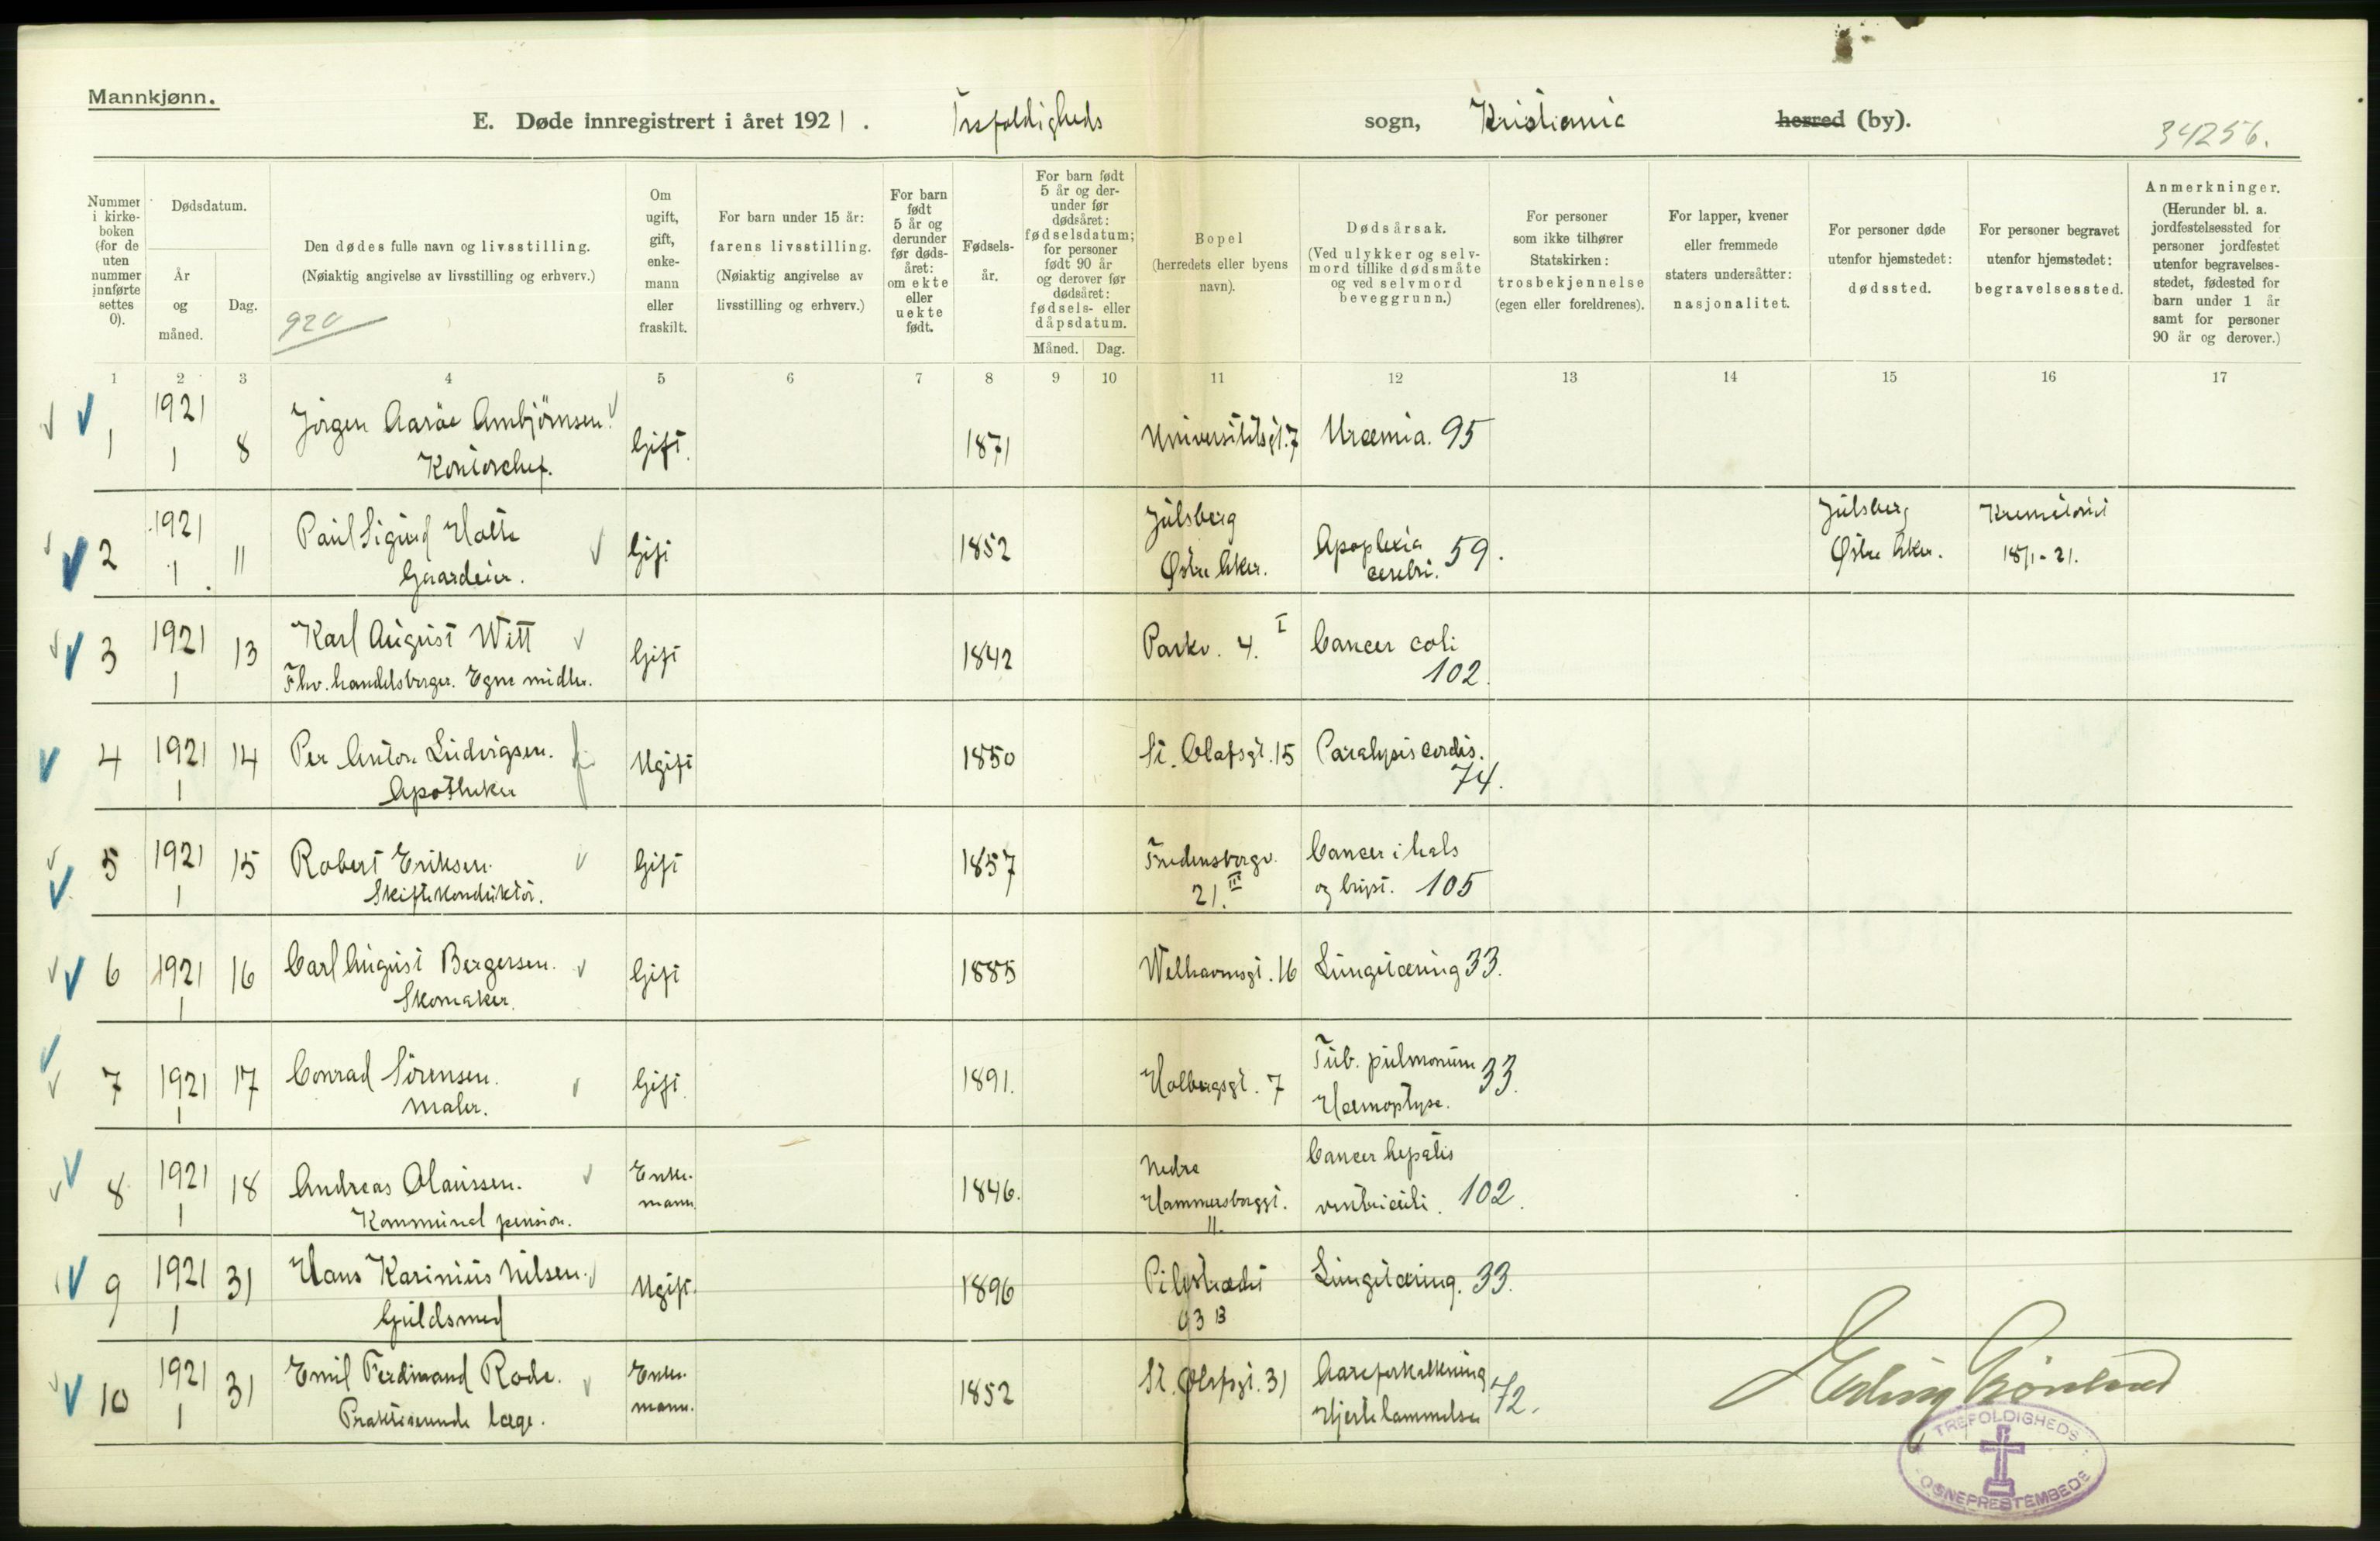 Mannkjønn.
E. Døde innregistrert i året 1921. Trefoldigheds sogn, Kristiania herred (by).
34256.
Nummer i kirkeboken (for de uten nummer innførte settes 0).
Dødsdatum.
År og måned.
Dag.
Den dødes fulle navn og livsstilling.
(Nøiaktig angivelse av livsstilling og erhverv.)
920
Om ugift, gift, enkemann eller fraskilt.
For barn under 15 år:
farens livsstilling.
(Nøiaktig angivelse av livsstilling og erhverv.)
For barn født 5 år og derunder før dødsåret: om ekte eller uekte født.
Fødselsår.
For barn født 5 år og derunder før dødsåret: fødselsdatum; for personer født 90 år og derover før dødsåret: fødsels- eller dåpsdatum.
Måned. Dag.
Bopel
(herredets eller byens navn).
Dødsårsak.
(Ved ulykker og selvmord tillike dødsmåte og ved selvmord beveggrunn.)
For personer som ikke tilhører Statskirken:
trosbekjennelse
(egen eller foreldrenes).
For lapper, kvener eller fremmede staters undersåtter:
nasjonalitet.
For personer døde utenfor hjemstedet:
dødssted.
For personer begravet utenfor hjemstedet:
begravelsessted.
Anmerkninger.
(Herunder bl. a. jordfestelsessted for personer jordfestet utenfor begravelsesstedet, fødested for barn under 1 år samt for personer 90 år og derover.)
1 2 3 4 5 6 7 8 9 10 11 12 13 14 15 16 17
1 1921 1 8 Jörgen Aaröe Ambjörnsen. Gift. 1871 Universitetsgt. 7 Uræmia. 95
Kontorchef.
2 1921 1 11 Paul Sigurd Holte Gift 1852 Julsberg Østre Aker. Apoplexia cerebri. 59. Julsberg Østre Aker. Krematoriet 18/1-21.
Gaardeier.
3 1921 1 13 Karl August Witt Gift 1842 Parkv. 4. I Cancer coli 102.
Fhv. handelsborger. Egne midler.
4 1921 1 14 Per Anton Ludvigsen. Ugift 1850 St. Olafsgt. 15 Paralysis cordis. 74.
Apotheker
5 1921 1 15 Robert Eriksen. Gift 1857 Fredensborgv. 21. III Cancer i hals og bryst. 105
Skiftekonduktör.
6 1921 1 16 Carl August Bergersen. Gift 1885 Welhavensgt. 16 Lungetæring 33.
Skomaker.
7 1921 1 17 Conrad Sörensen. Gift 1891. Holbergsgt. 7 Tub. pulmonum Hæmoptyse. 33.
Maler.
8 1921 1 18 Andreas Olaussen. Enkemann. 1846. Nedre Hammersborggt. 11. Cancer hepatis ventriculi. 102.
Kommunal pension.
9 1921 1 31 Hans Karinius Nilsen. Ugift. 1896 Pilestrædet 63 B Lungetæring. 33.
Guldsmed
10 1921 1 31 Emil Ferdinand Rode. Enkemann. 1852 St. Olafsgt. 31 Aareforkalkning Hjertelammelse 72.
Praktiserende læge.
TREFOLDIGHEDS
SOGNEPRESTEMBEDE